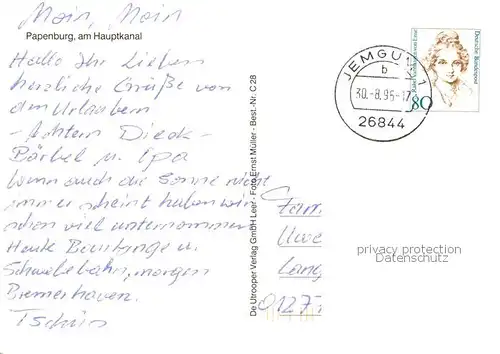 Moin, Moin
Papenburg, am Hauptkanal
Hallo Ihr Lieben
herzliche Grüße von
den Urlaubern
- Achtern Dieck -
Bärbel u. Opa
Wenn auch die Sonne nicht
immer scheint haben wir
schon viel unternommen
Heute Bourtange u.
Schwebebahn, morgen
Bremerhaven.
Tschüs
De Utrooper Verlag GmbH Leer - Foto Ernst Müller - Best.-Nr. C 28
JEMGUM 1
b
30.-8.95-17
26844
Deutsche Bundespost
80
Fam.
Uwe
Lang
0127
privacy protection
Datenschutz